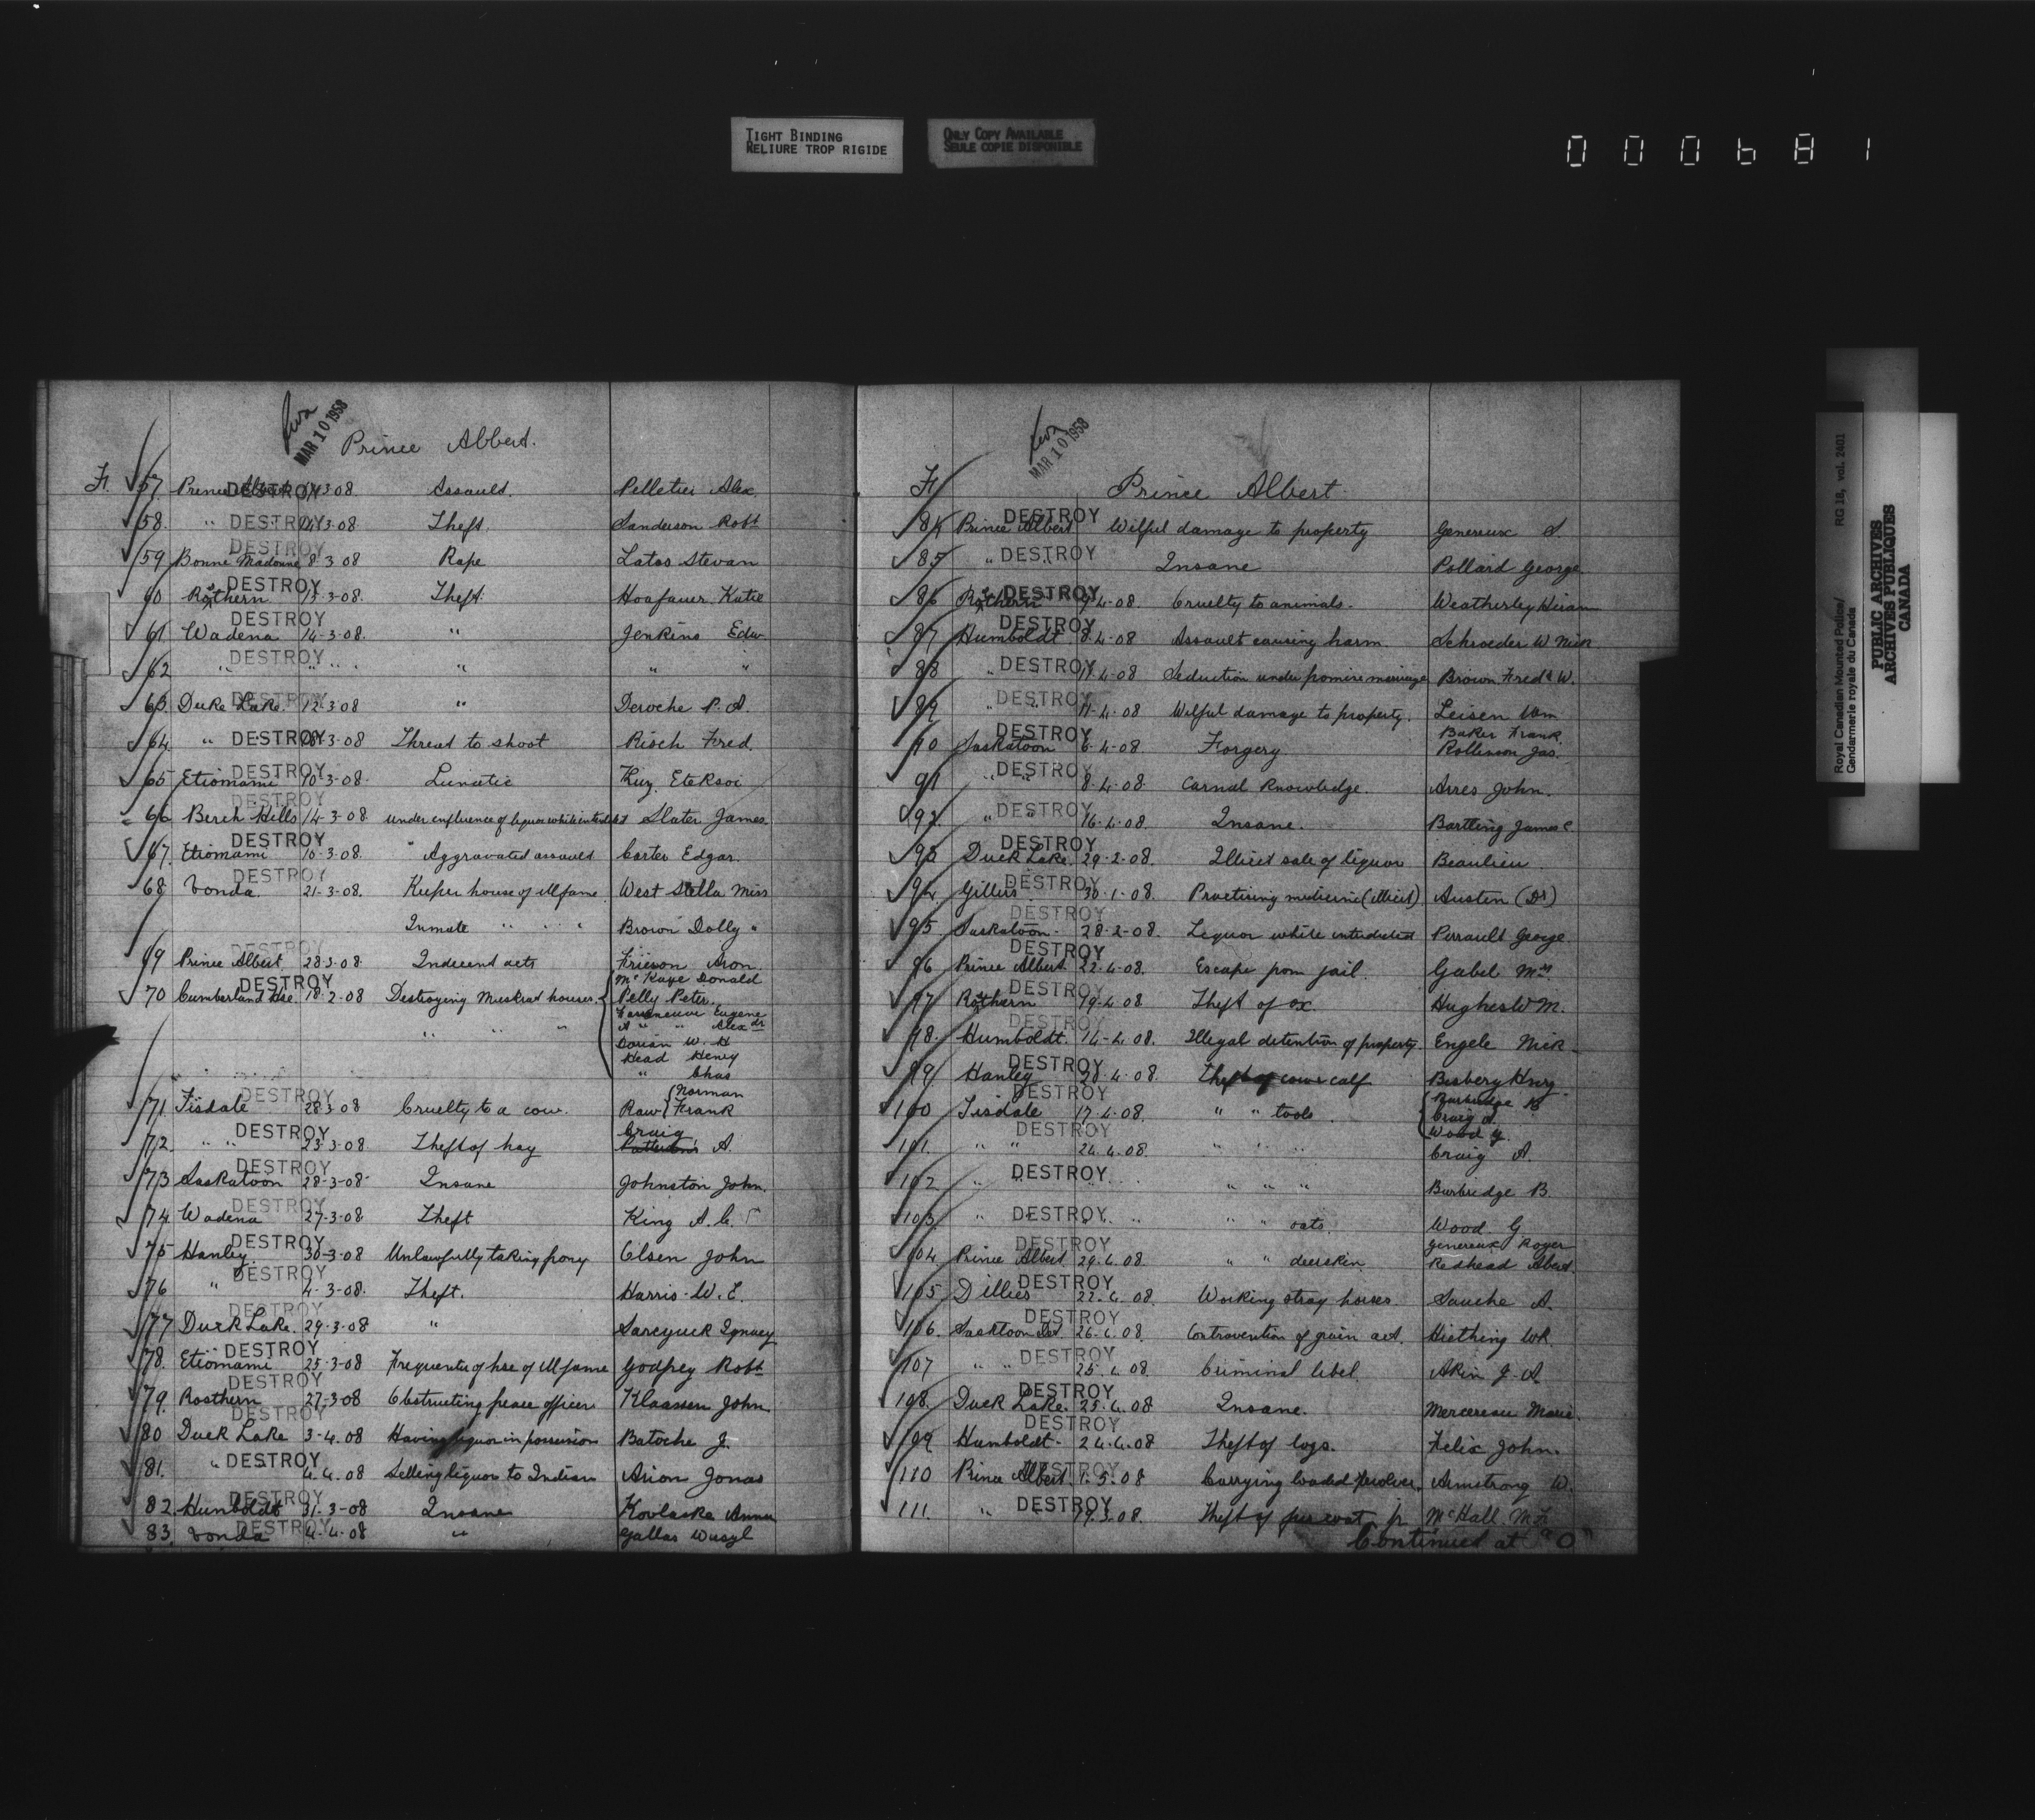 TIGHT BINDING
RELIURE TROP RIGIDE
ONLY COPY AVAILABLE
SEULE COPIE DISPONIBLE
000681
Royal Canadian Mounted Police/ RG 18, vol. 2401
Gendarmerie royale du Canada
PUBLIC ARCHIVES
ARCHIVES PUBLIQUES
CANADA
MAR 10 1958
Prince Albert.
57 Prince Albert DESTROY 3-08 Assault. Pelletier Alex
58. " DESTROY 3-08 Theft. Sanderson Robt
DESTROY
59 Bonne Madonne 8-3 08 Rape Latos Stevan
DESTROY
60 Rosthern 15-3-08. Theft. Katie
DESTROY
61. Wadena 14-3-08. " Jenkins Edw
DESTROY
62 " " " " "
DESTROY
63. Duke Lake. 12-3-08 " Deroche P. A.
64 " DESTROY 3-08 Threat to shoot Risch Fred.
DESTROY
65 Etiomami 10-3-08. Lunatic
DESTROY
66 Berch Hills 14-3-08 under influence of liquor while interdicted Slater James.
DESTROY
67. Etiomami 10-3-08. " Aggravated assault Carter Edgar.
DESTROY
68 Vonda 21-3-08. Keeper house of ill fame West Stella Miss
Inmate " " " Brown Dolly "
DESTROY
69 Prince Albert 28-3-08. Indecent acts Aron.
DESTROY
McKaye Donald
70 Cumberland Hse. 18-2-08 Destroying Muskrat houses. Pelly Peter.
Eugene
" " " " " Alexdr
Dorian W. H
Head Henry
" Chas
DESTROY
Norman
71 Tisdale 28-3-08 Cruelty to a cow. Raw Frank
DESTROY
Craig
72. " " 23-3-08. Theft of hay A.
DESTROY
73 Saskatoon 28-3-08 Insane Johnston John.
DESTROY
74 Wadena 27-3-08. Theft King A. C.
DESTROY
75 Hanley 30-3-08 Unlawfully taking pony Olsen John
DESTROY
76 " 4-3-08. Theft. Harris W. E.
DESTROY
77 Duck Lake. 29-3-08 " Sarcyuck Ignacy
DESTROY
78. Etiomami 25-3-08 Frequenter of hse of ill fame Godfrey Robt
DESTROY
79. Rosthern 27-3-08 Obstructing peace officer Klaassen John
DESTROY
80 Duck Lake 3-4-08 Having liquor in possession Batoche J.
DESTROY
81. " 4-4-08 Selling liquor to Indian Arion Jonas
DESTROY
82. Humboldt 31-3-08 Insane Kovlaska Anna
DESTROY
83. Vonda 4-4-08 " Gallas Wasyl
MAR 10 1958
Prince Albert
DESTROY
84 Prince Albert Wilful damage to property Genereux S.
85 " DESTROY Insane Pollard George
DESTROY
86 Rosthern 9-4-08. Cruelty to animals. Weatherley Hiram
DESTROY
87 Humboldt 8-4-08 Assault causing harm. Schroeder W Nick
88 " DESTROY 11-4-08 Seduction under promise marriage Brown Fredk W.
DESTROY
89 " 11-4-08 Wilful damage to property. Leisen Wm
DESTROY
Baker Frank.
90 Saskatoon 6-4-08 Forgery Rollinson Jas.
DESTROY
91 " 8-4-08. Carnal Knowledge. Arres John.
DESTROY
92. " 16-4-08. Insane. Bartling James C
DESTROY
93 Duck Lake. 29-2-08. Illicit sale of liquor Beaulieu
DESTROY
94. Gillies 30-1-08. Practising medicine (illicit) Austen (Dr)
DESTROY
95. Saskatoon 28-2-08. Liquor while interdicted Perrault George.
DESTROY
96 Prince Albert 22-4-08. Escape from jail. Gabel Mrs.
DESTROY
97 Rosthern 19-4-08 Theft of ox. Hughes W M.
DESTROY
98. Humboldt. 14-4-08. Illegal detention of property. Engele Nick
DESTROY
99 Hanley 20-4-08. Theft of calf Henry
DESTROY
Burbridge B
100 Tisdale 17-4-08. " " tools Craig A.
Wood G.
DESTROY
101. " " 24-4-08. " " Craig A.
DESTROY
102 " " " " " Burbridge B.
103. " DESTROY " " " oats. Wood G
DESTROY
Genereux Roger
104 Prince Albert 29-4-08. " " deerskin. Redhead Albert.
DESTROY
105 Dillies 22-4-08. Working stray horses. Sauche A.
DESTROY
106. 26-4-08. Contravention of grain act. Histhing WR.
DESTROY
107 " " 25-4-08. Criminal libel. Akin J. A.
DESTROY
108. Duck Lake. 25-4-08 Insane. Mercereau Marie.
DESTROY
109 Humboldt. 24-4-08 Theft of logs. Felix John.
DESTROY
110 Prince Albert. 1-5-08 Carrying loaded revolver. Armstrong W.
DESTROY
111. " 19-3-08. Theft of fur coat McHall M F.
Continued at "O"